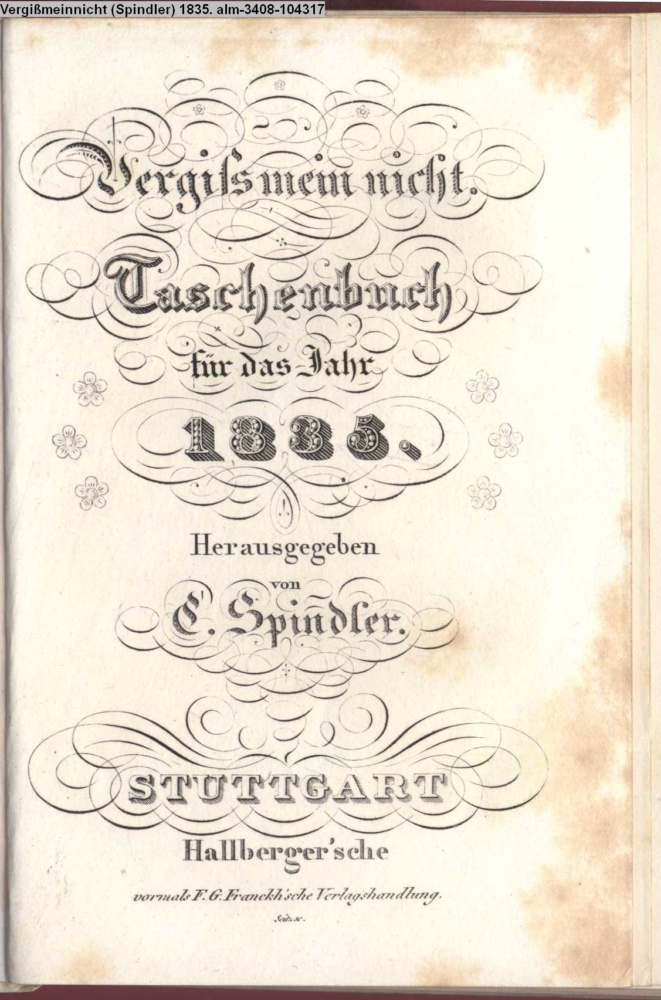 Vergißmeinnicht (Spindler) 1835. alm-3408-104317
Vergiſsmeinnicht.
Taschenbuch
für das Jahr
1835.
Herausgegeben
von
C. Spindler.
STUTTGART
Hallberger'sche
vormals F. G. Franckh'sche Verlagshandlung.